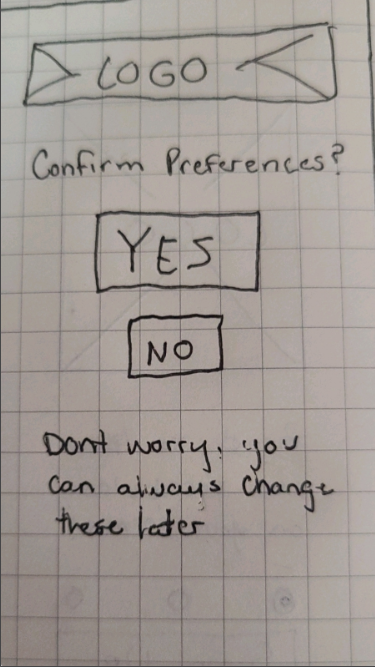 LOGO
Confirm Preferences?
YES
NO
Dont worry, you
can always change
these later